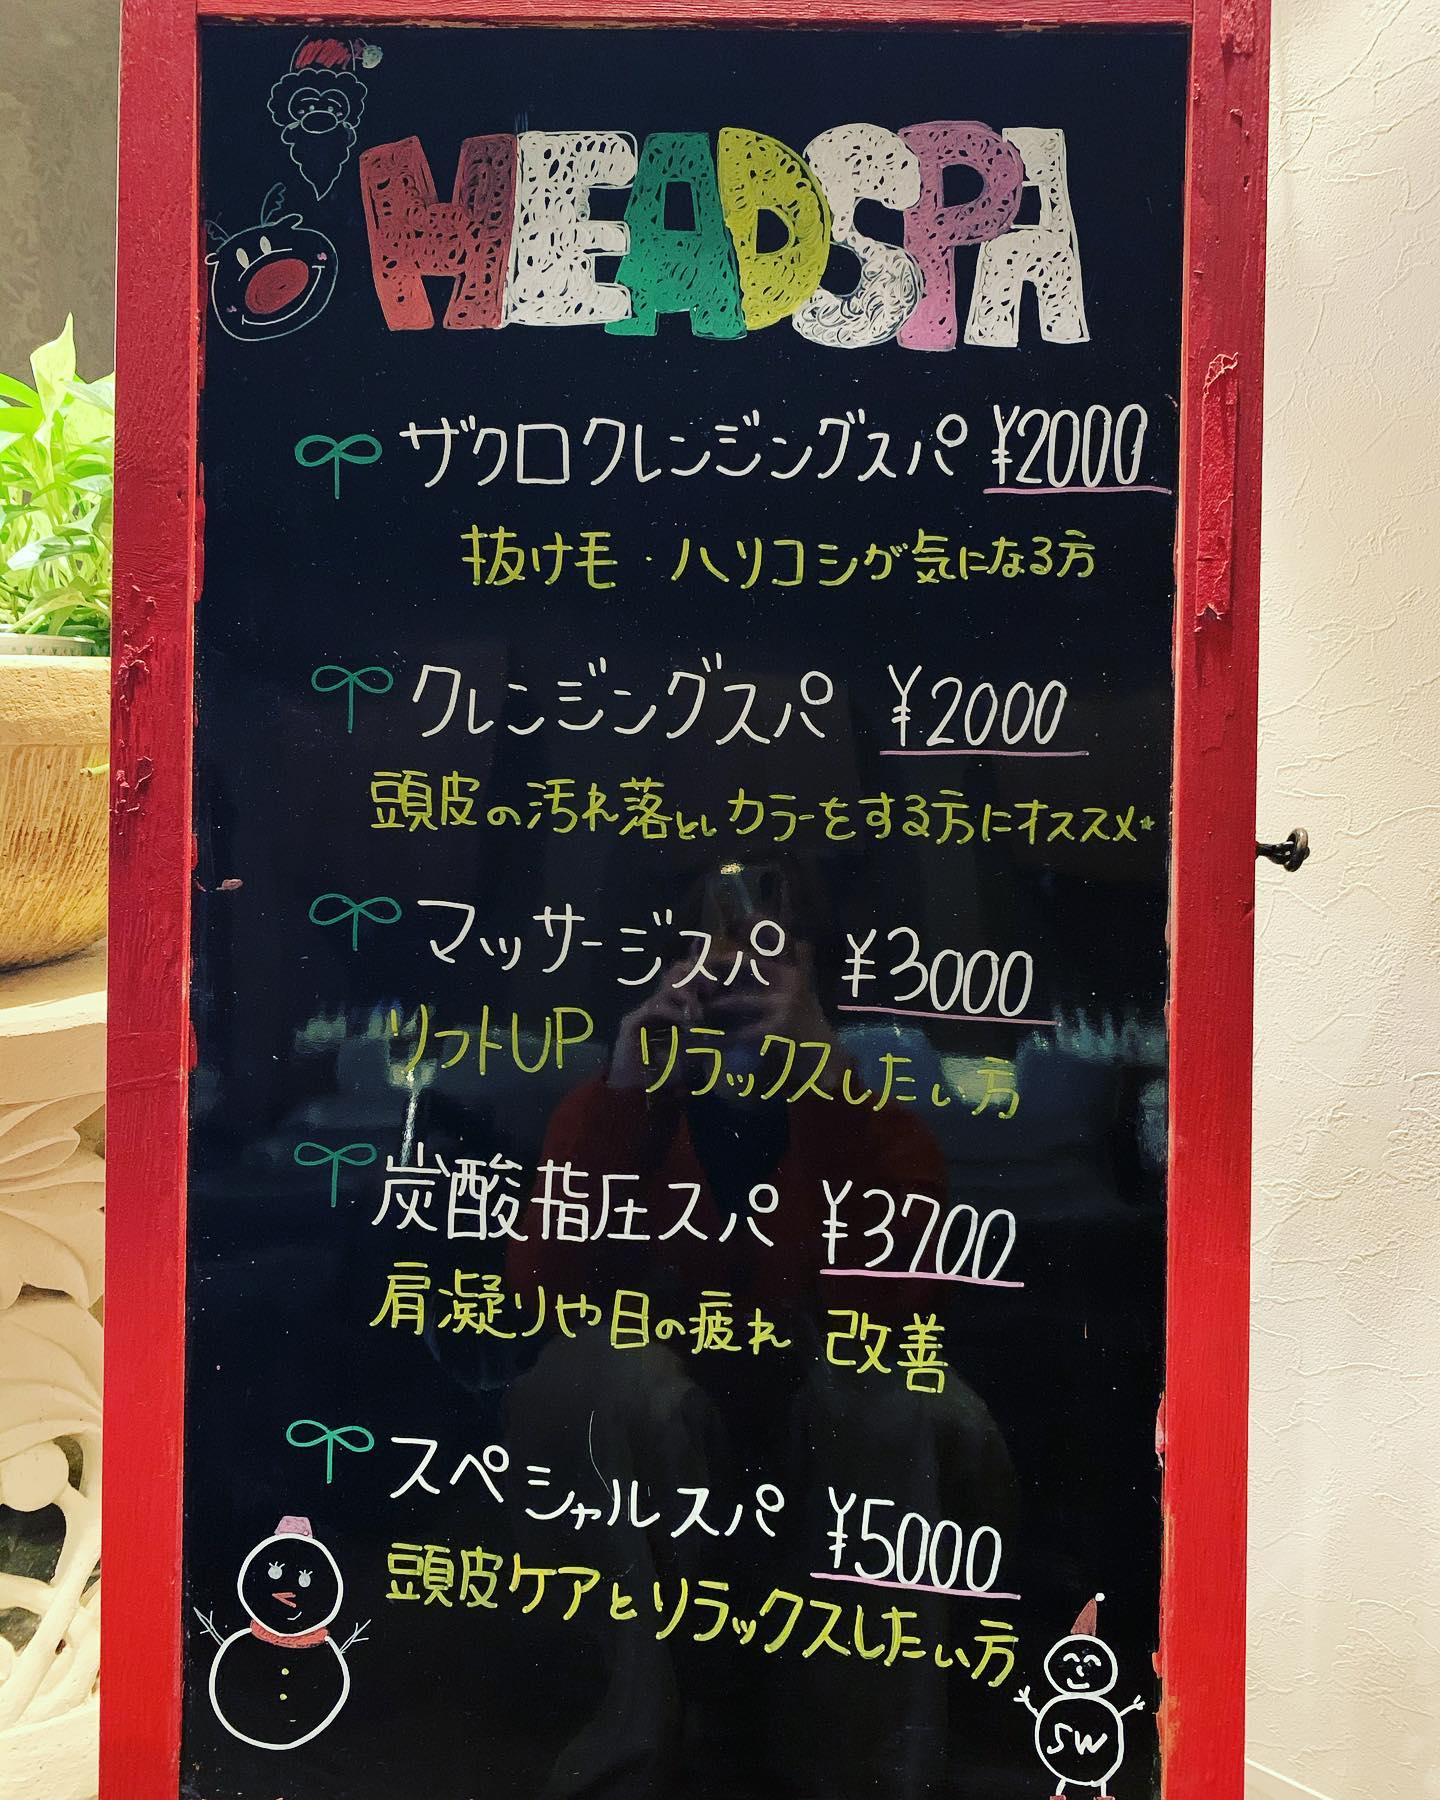 HEADSPA
ザクロクレンジングスパ ¥2000
抜け毛・ハリコシが気になる方
クレンジングスパ ¥2000
頭皮の汚れ落としカラーをする方にオススメ☆
マッサージスパ ¥3000
リフトUP リラックスしたい方
炭酸指圧スパ ¥3700
肩凝りや目の疲れ 改善
スペシャルスパ ¥5000
頭皮ケアとリラックスしたい方
SW